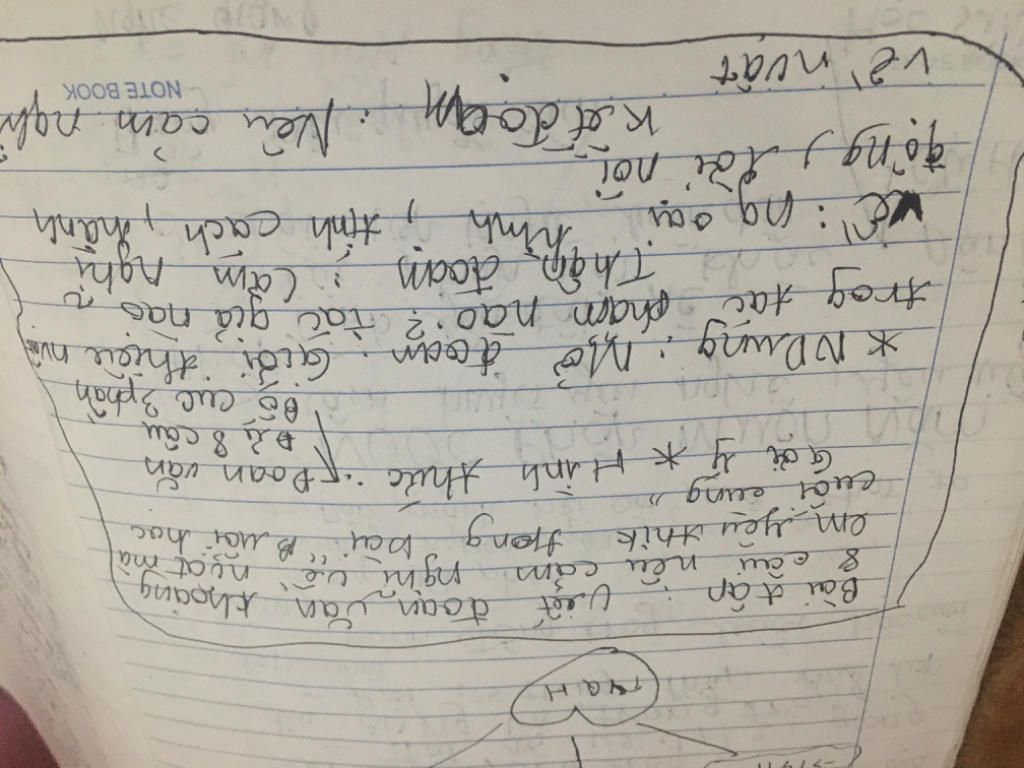 Bài tập : Viết đoạn văn khoảng
8 câu nêu cảm nghĩ về nvật mà
em yêu thik trong bài "Buổi học
cuối cùng"
Gợi ý * Hình thức : Đoạn văn
Đủ 8 câu
Bố cục 3 phần
* NDung : Mở đoạn : Giới thiệu
trog tác phẩm nào ? tác giả nào ?
Thân đoạn : Cảm nghĩ
về : ng oại hình, tính cách, hành
động, lời nói
Kết đoạn : Nêu cảm nghĩ
về nvật
NOTE BOOK